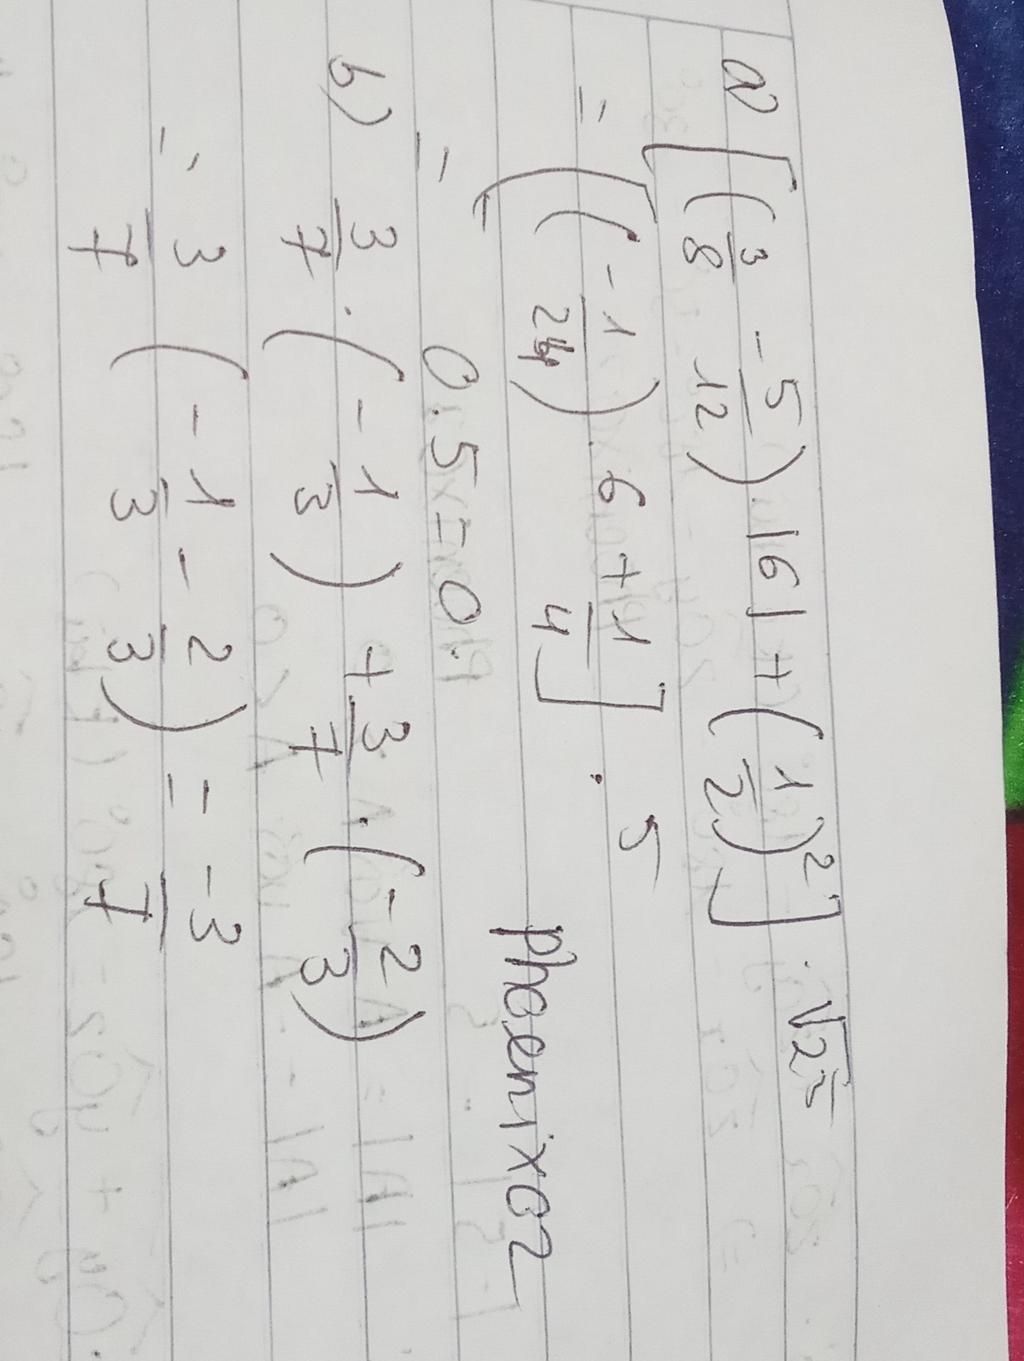 a) [(3/8 - 5/12) . |6| + (1/2)²] . √25
= [(-1/24) . 6 + 1/4] . 5
= 0 . 5 = 0
phoenixo2
b) 3/7 . (-1/3) + 3/7 . (-2/3)
= 3/7 (-1/3 - 2/3) = -3/7